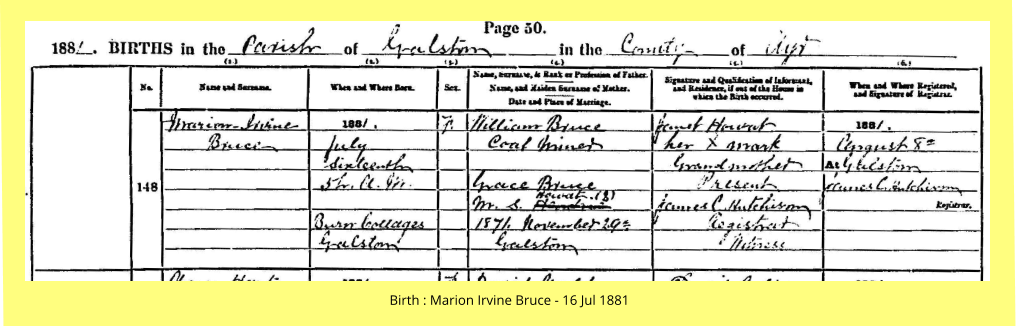 Page 50.
1881. BIRTHS in the Parish of Galston in the County of Ayr
(1.) (2.) (3.) (4.) (5.) (6.)
No.
Name and Surname.
When and Where Born.
Sex.
Name, Surname, & Rank or Profession of Father.
Name, and Maiden Surname of Mother.
Date and Place of Marriage.
Signature and Qualification of Informant,
and Residence, if out of the House in
which the Birth occurred.
When and Where Registered,
and Signature of Registrar.
148
Marion Irvine
Bruce
1881.
July
Sixteenth
5h. A.M.
Burn Cottages
Galston
F.
William Bruce
Coal Miner
Grace Bruce
Howat
M. S.
1871. November 29th
Galston
Janet Howat
her X mark
Grandmother
Present
James C. Hutchison
Registrar
Witness
1881.
August 8th
At Galston
James C. Hutchison
Registrar.
Birth : Marion Irvine Bruce - 16 Jul 1881